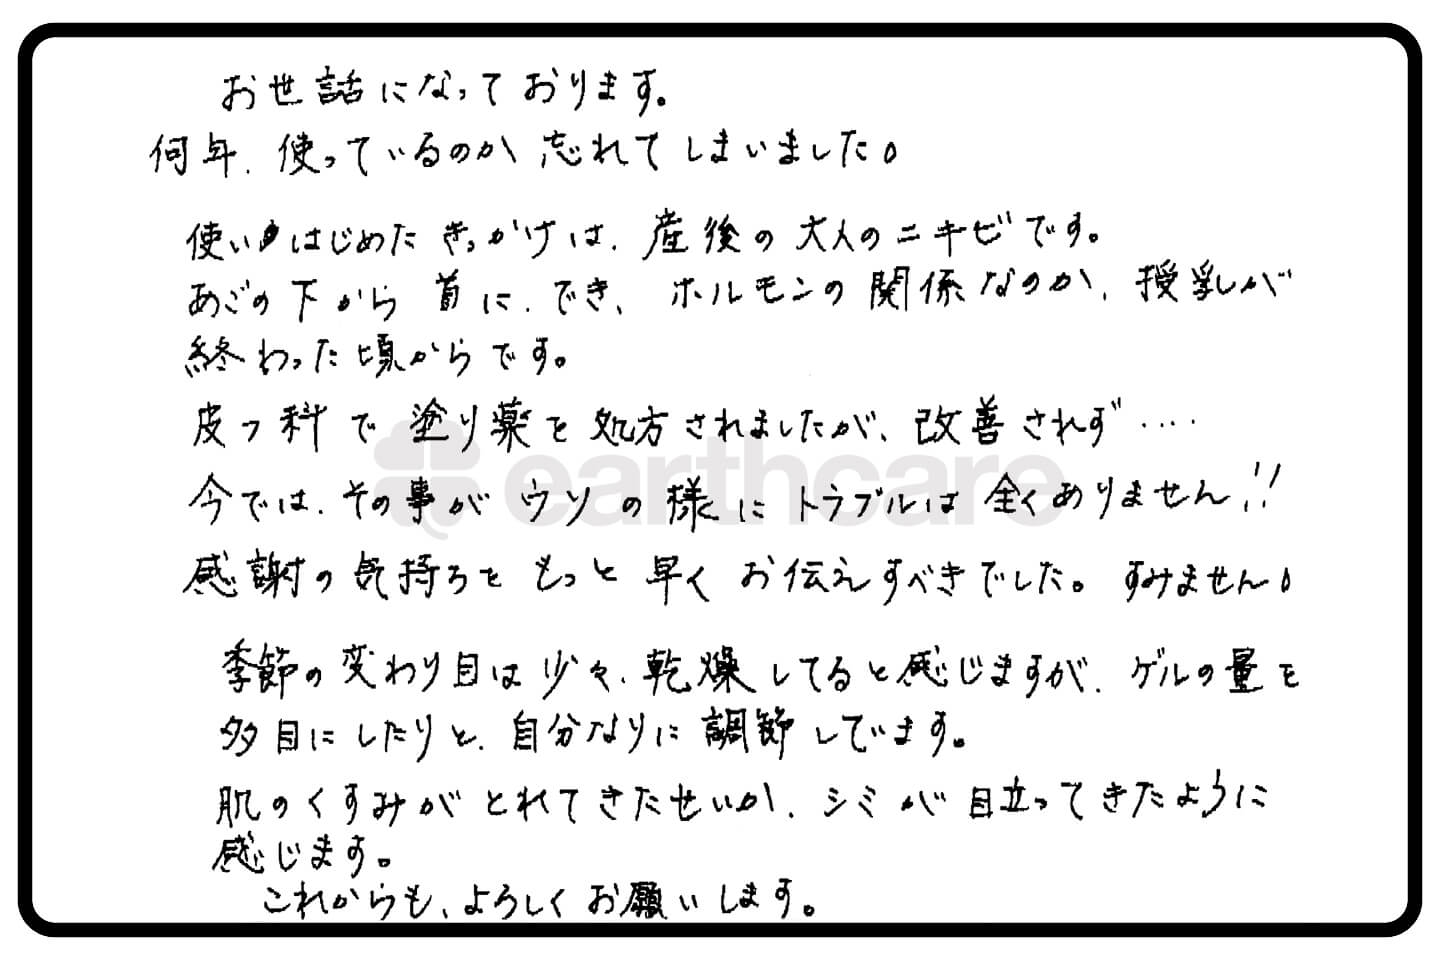 お世話になっております。
何年、使っているのか忘れてしまいました。
使いはじめたきっかけは、産後の大人のニキビです。
あごの下から首に、でき、ホルモンの関係なのか、授乳が
終わった頃からです。
皮フ科で塗り薬を処方されましたが、改善されず‥‥
今では、その事がウソの様にトラブルは全くありません!!
earthcare
感謝の気持ちをもっと早くお伝えすべきでした。すみません。
季節の変わり目は少々、乾燥してると感じますが、ゲルの量を
多目にしたりと、自分なりに調節しています。
肌のくすみがとれてきたせいか、シミが目立ってきたように
感じます。
これからも、よろしくお願いします。